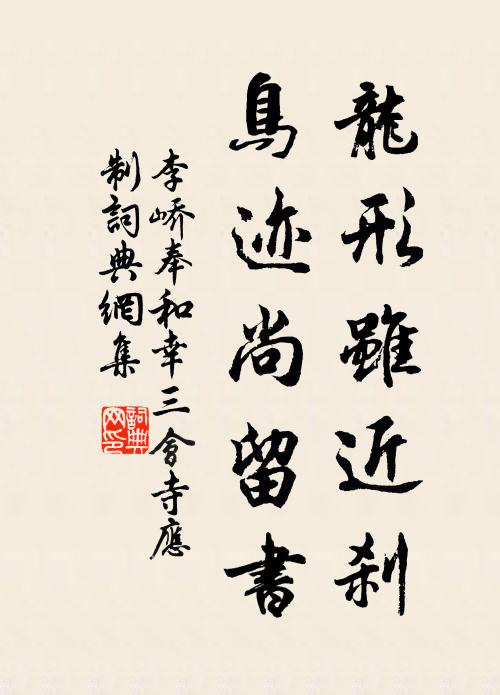 龍形雖近刹
鳥迹尚留書
李嶠奉和幸三會寺應
制詞典網集
詞典
网印